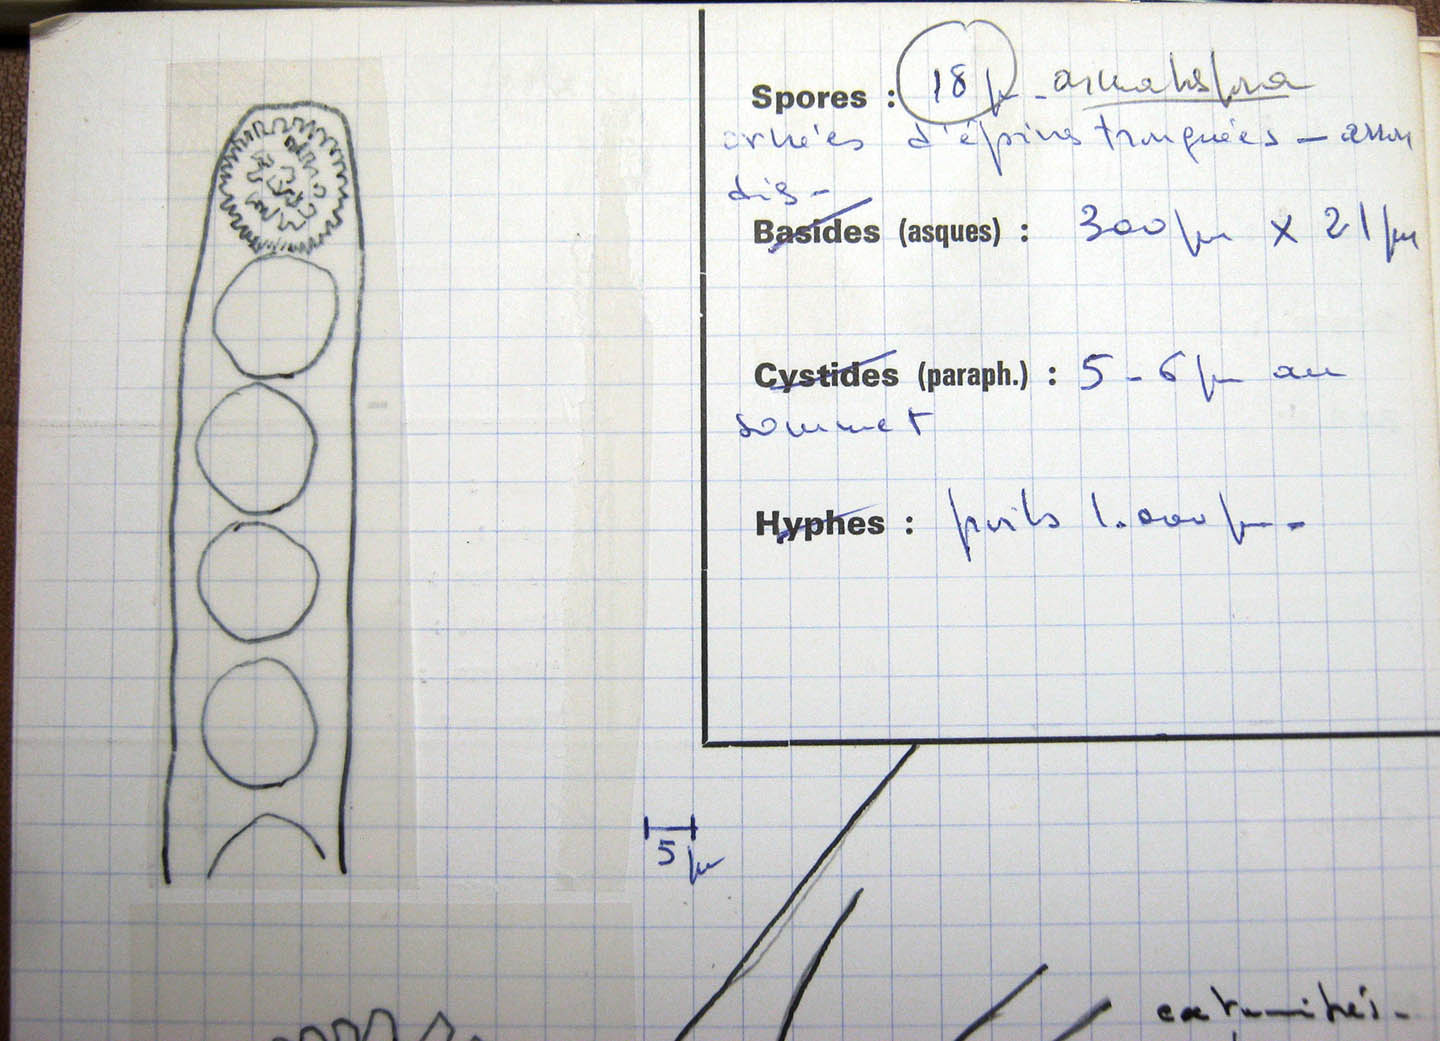 Spores : 18 µ -
ornées d'épines tronquées -
dis -
Basides (asques) : 300 µ x 21 µ
Cystides (paraph.) : 5 - 6 µ au
sommet
Hyphes : poils 1.000 µ -
5 µ
extrémités -